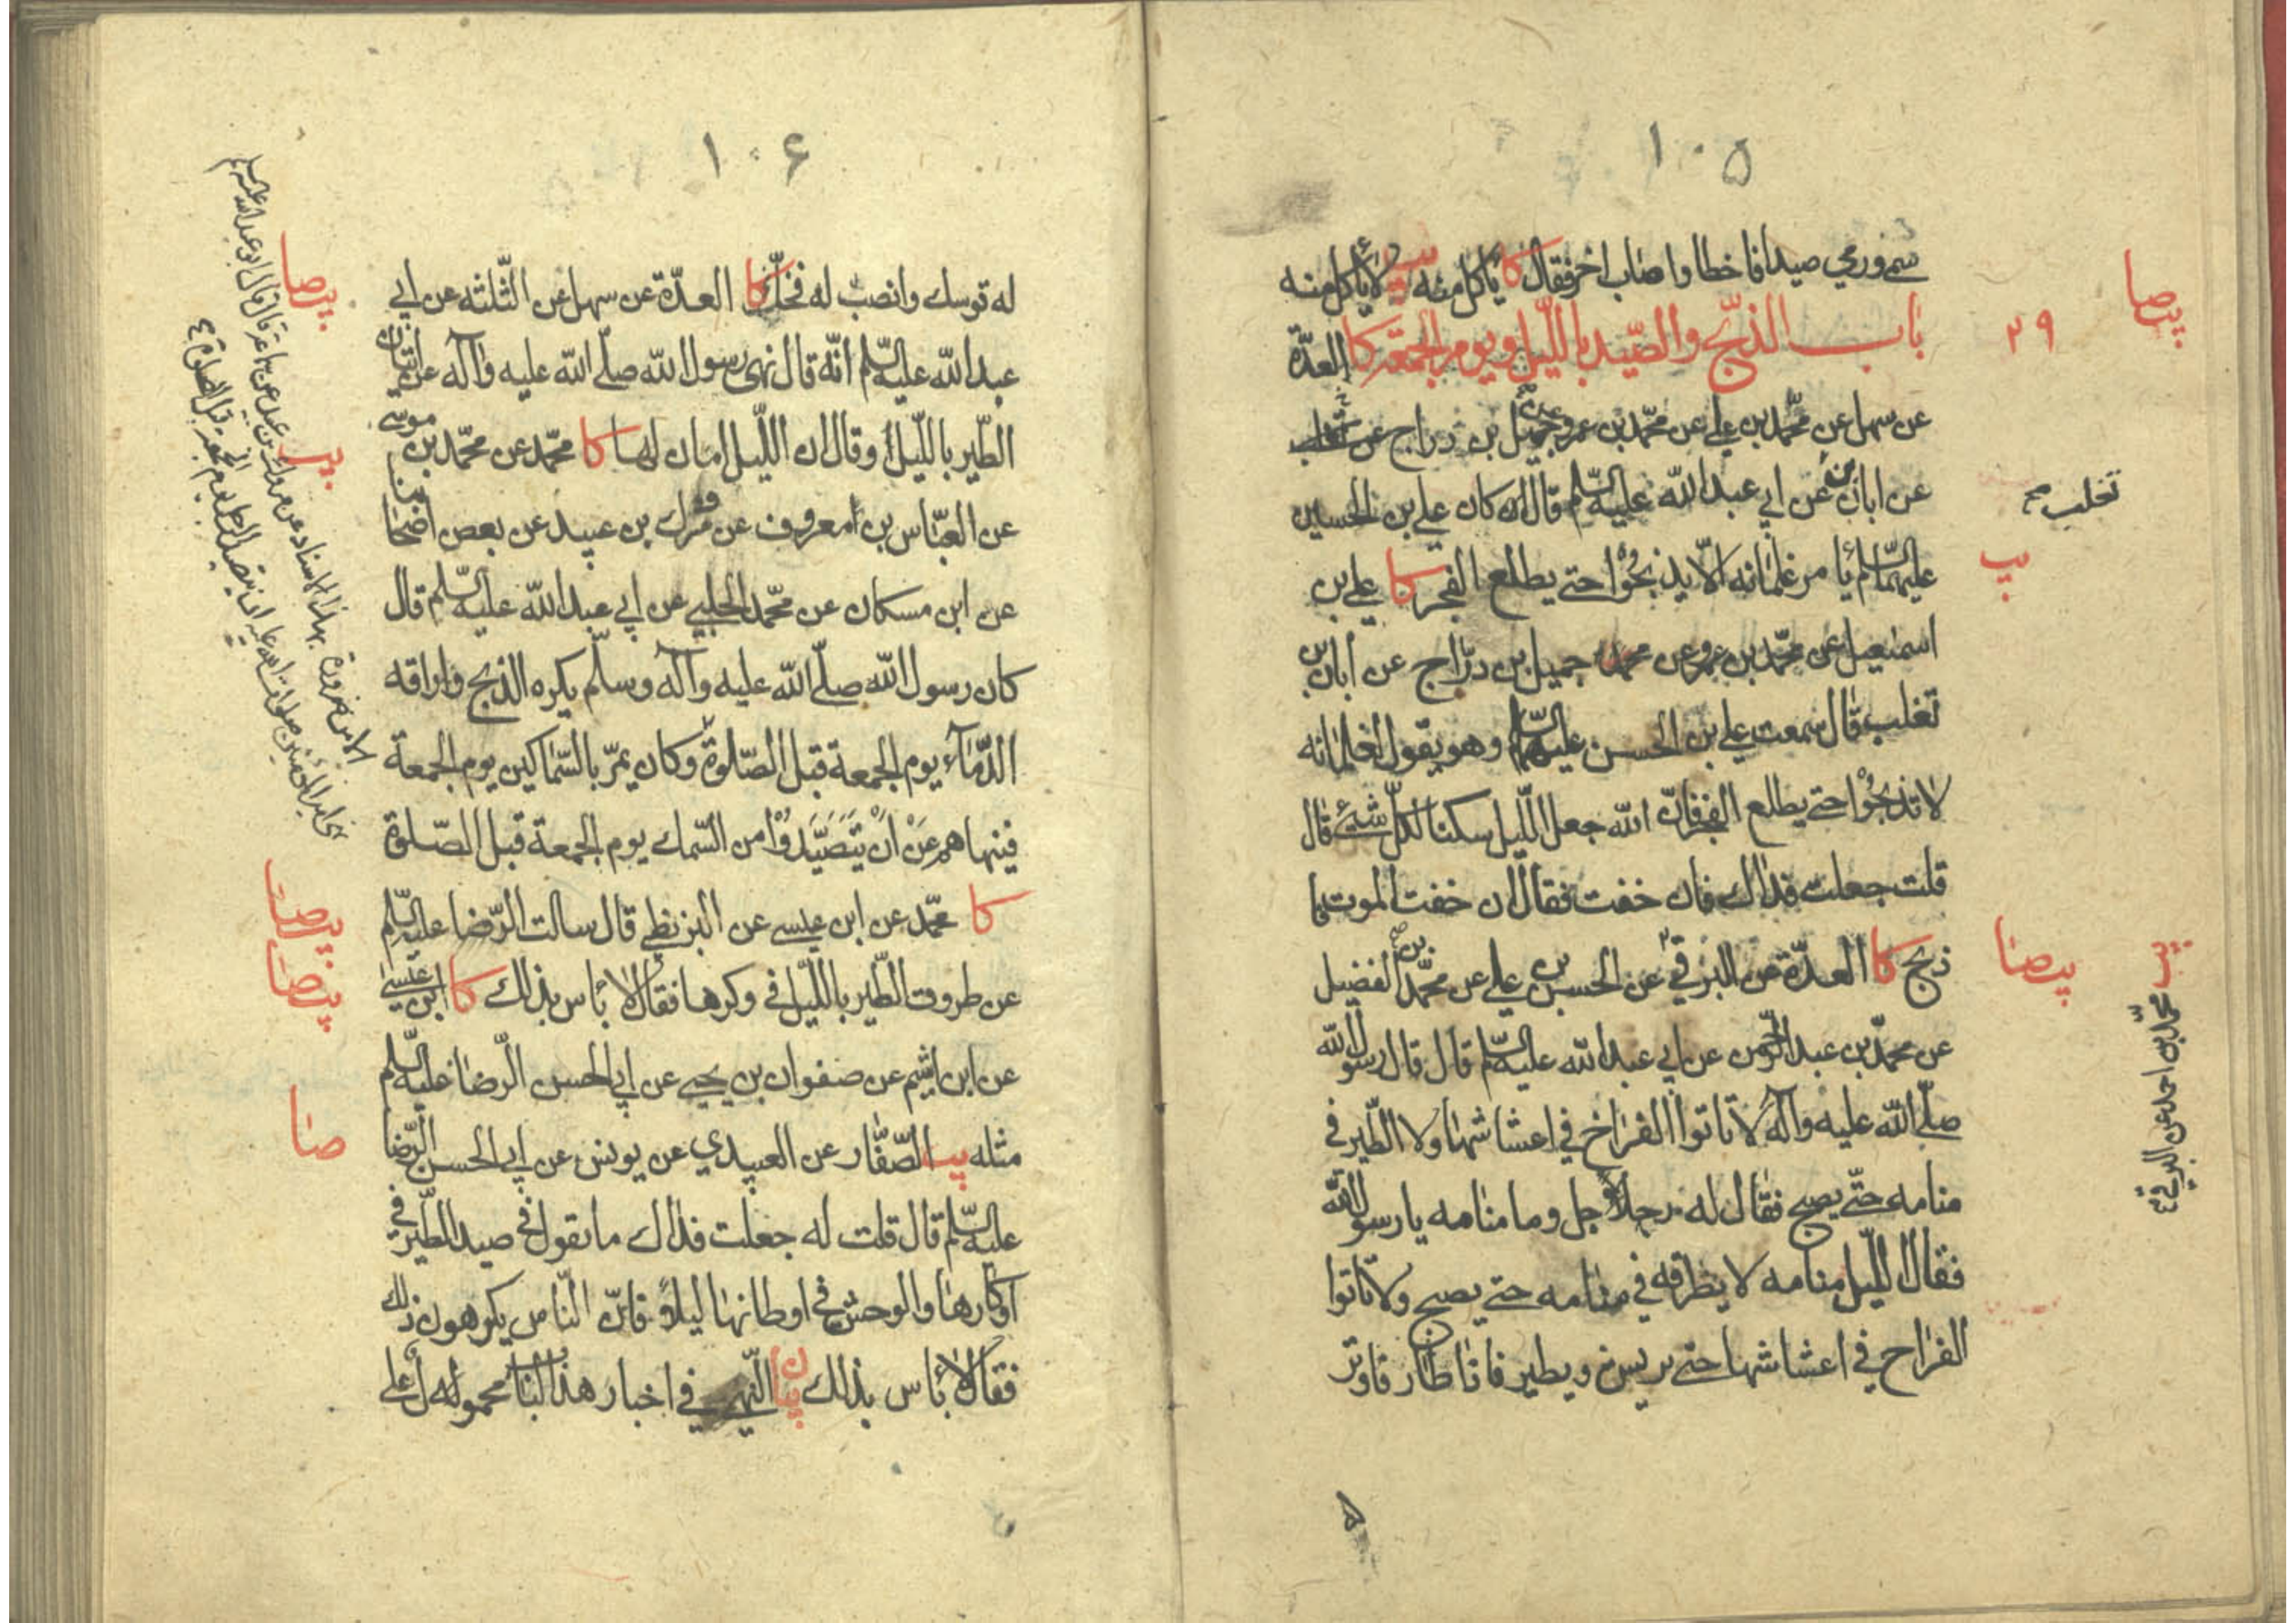 ١٠٥
سمى ورمى صيدا فاخطا واصاب اخر فقال كا ياكل منه يب لا يأكل منه
باب الذبح والصّيد بالليل ويوم الجمعة كا العدّة
عن سهل عن محمّد بن علي عن محمّد بن عمرو عن جميل بن دراج
عن ابان بن عن ابي عبد الله عليه السّلم قال كان علي بن الحسين
عليهما السّلم يأمر غلمانه الّا يذبحُوْا حتى يطلع الفجر كا علي بن
اسمعيل عن محمّد بن عمرو عن جميل بن درّاج عن ابان بن
تغلب قال سمعت علي بن الحسين عليهما السّلم وهو يقول لغلمانه
لا تذبحُوْا حتى يطلع الفجر فانّ الله جعل اللّيل سكنا لكلّ شيئ قال
قلت جعلت فداك فان خفت فقال ان خفت الموت فا
ذبح كا العدّة عن البرقي عن الحسن بن علي عن محمّد بن الفضيل
عن محمّد بن عبد الرّحمن عن ابي عبد الله عليه السّلم قال قال رسول الله
صلّى الله عليه وآله لا تاتوا الفراخ في اعشاشها ولا الطّير في
منامه حتّى يصبح فقال له رجل وما منامه يا رسول الله
فقال اللّيل منامه لا يطرقه في منامه حتى يصبح ولا تاتوا
الفراخ في اعشاشها حتى يريش ويطير فاذا طار فاوتر
يبصا
٢٩
تغلب صح
يب
يبصا
يب محمّد بن احمد عن البرقي
١٠٦
له قوسك وانصب له فخّك كا العدّة عن سهل عن الثّلثه عن ابي
عبد الله عليه السّلم انّه قال نهى رسول الله صلّى الله عليه وآله عن اتيان
الطّير باللّيل وقال ان اللّيل امان لها كا محمّد عن محمّد بن موسى
عن العبّاس بن معروف عن مروك بن عبيد عن بعض اصحابنا
عن ابن مسكان عن محمّد الحلبي عن ابي عبد الله عليه السّلم قال
كان رسول الله صلّى الله عليه وآله وسلّم يكره الذبح واراقه
الدّمآء يوم الجمعة قبل الصّلوة وكان يمرّ بالسّماكين يوم الجمعة
فينهاهم عَنْ انْ يَّتَصَيَّدُوْا من السّمك يوم الجمعة قبل الصّلوة
كا محمّد عن ابن عيسى عن البزنطي قال سالت الرّضا عليه السّلم
عن طروق الطّير باللّيل في وكرها فقال لا بأس بذلك كا ابن عيسى
عن ابن اشيم عن صفوان بن يحيى عن ابي الحسن الرّضا عليه السّلم
مثله يب الصّفّار عن العبيدي عن يونس عن ابي الحسن الرّضا
عليه السّلم قال قلت له جعلت فداك ما تقول في صيد الطّير في
اوكارها والوحش في اوطانها ليلاً فانّ النّاس يكرهون ذلك
فقال لا بأس بذلك بيان النّهي في اخبار هذا الباب محمولة على
يبصا
يب
يبصا
يبصا
صا